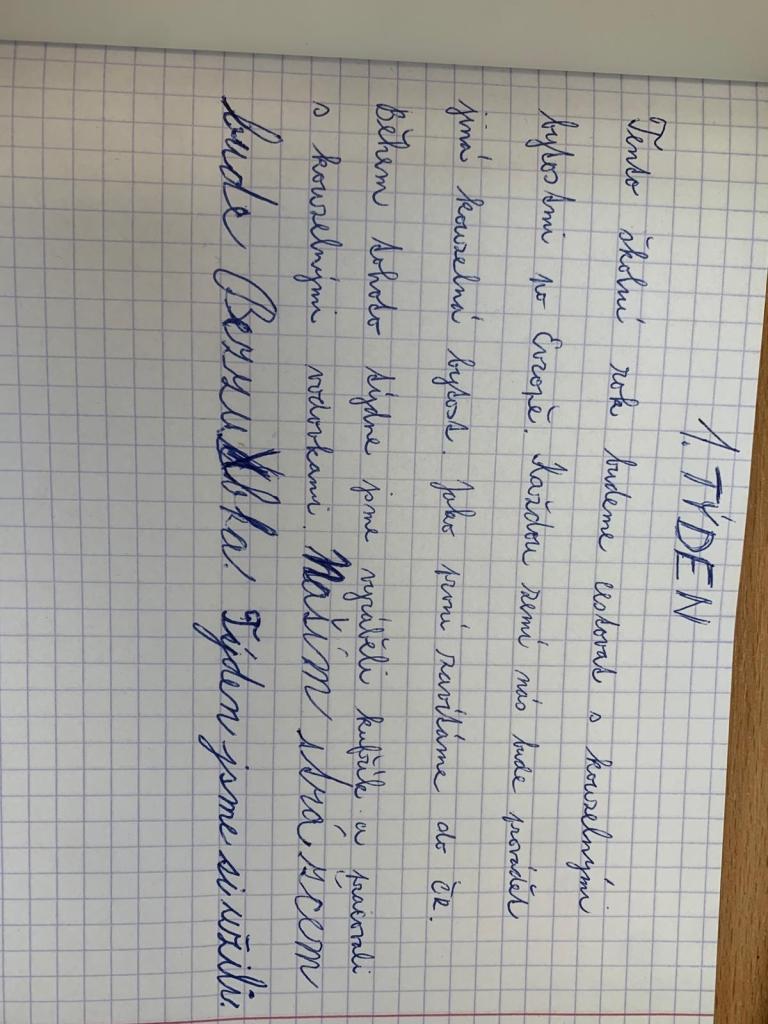 1. TÝDEN
Tento školní rok budeme cestovat s kouzelnými
bytostmi po Evropě. Každou zemí nás bude provádět
jiná kouzelná bytost. Jako první zavítáme do ČR.
Během tohoto týdne jsme vyráběli kufřík a pracovali
s kouzelnými vodovkami. Naším strážcem
bude Bezzubka. Týden jsme si užili.